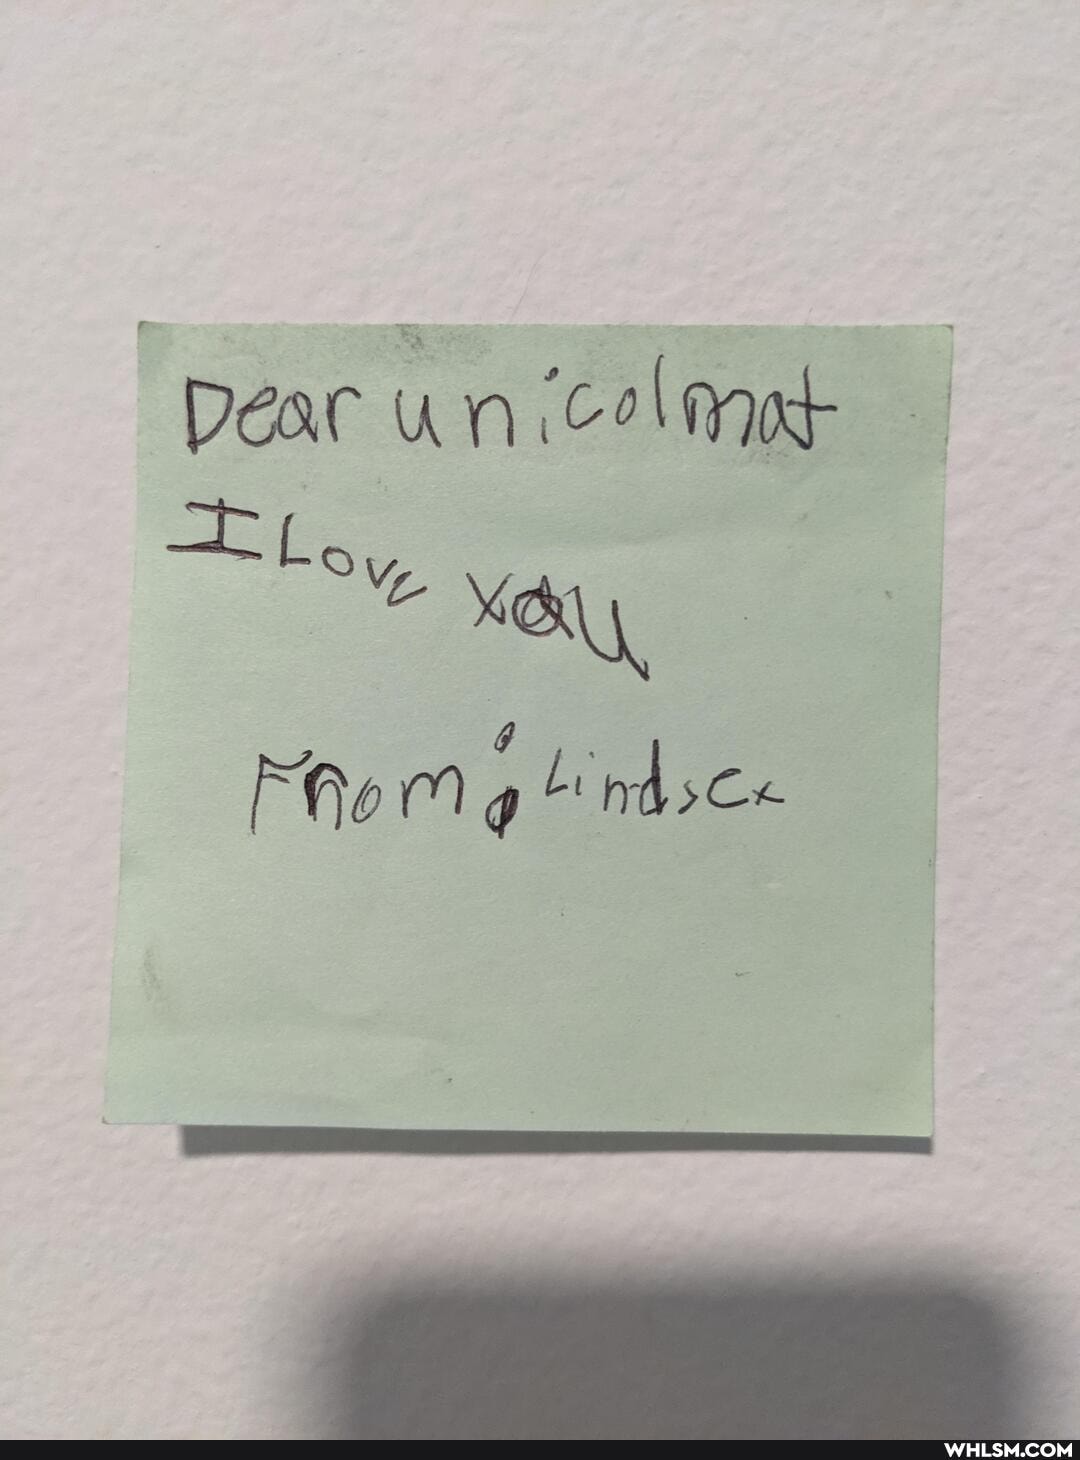 Dear unicolmat
I Love You
From: Lindsey
WHLSM.COM